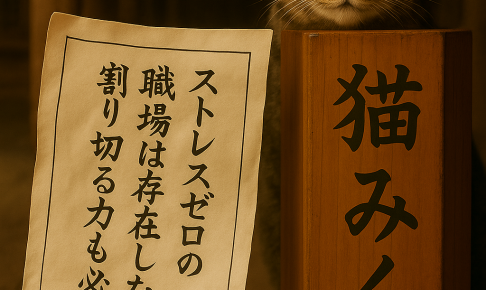 ストレスゼロの
職場は存在しな
割り切る力も必
猫みく